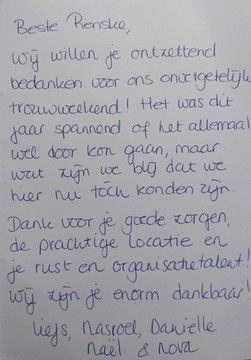 Beste Renske,
Wij willen je ontzettend
bedanken voor ons onvergetelijk
trouwweekend! Het was dit
jaar spannend of het allemaal
wel door kon gaan, maar
wat zijn we blij dat we
hier nu tóch konden zijn.
Dank voor je goede zorgen,
de prachtige locatie en
je rust en organisatietalent!
Wij zijn je enorm dankbaar!
Liefs, Nasroel, Daniëlle
Naël & Nova